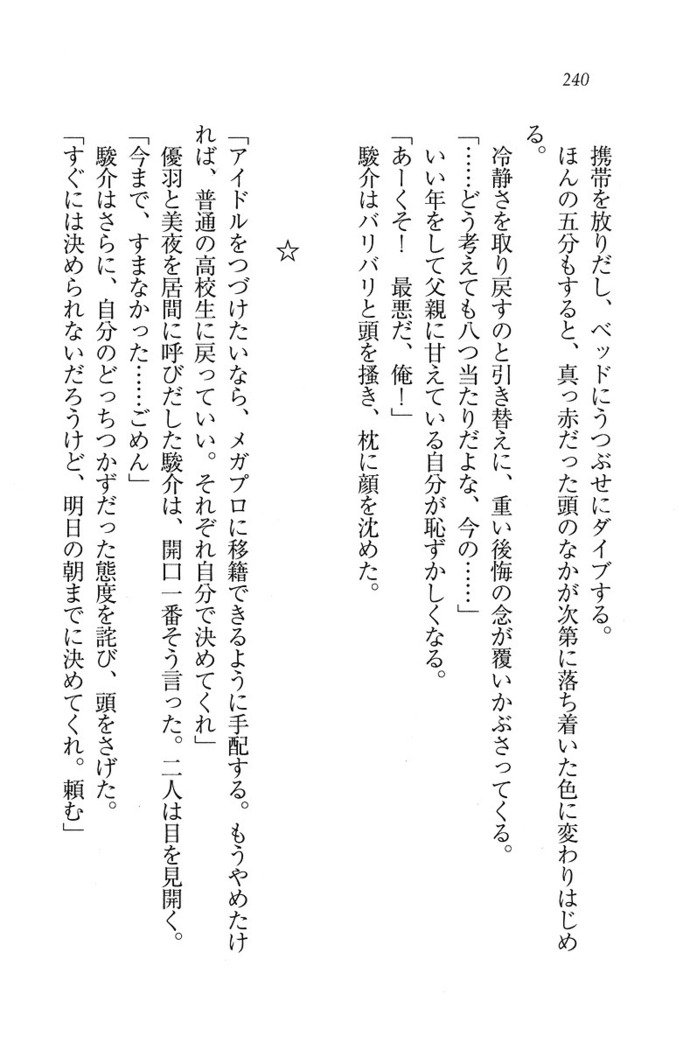 240
携帯を放りだし、ベッドにうつぶせにダイブする。
ほんの五分もすると、真っ赤だった頭のなかが次第に落ち着いた色に変わりはじめ
る。
冷静さを取り戻すのと引き替えに、重い後悔の念が覆いかぶさってくる。
「……どう考えても八つ当たりだよな、今の……」
いい年をして父親に甘えている自分が恥ずかしくなる。
「あーくそ！　最悪だ、俺！」
駿介はバリバリと頭を掻き、枕に顔を沈めた。
☆
「アイドルをつづけたいなら、メガプロに移籍できるように手配する。もうやめたけ
れば、普通の高校生に戻っていい。それぞれ自分で決めてくれ」
優羽と美夜を居間に呼びだした駿介は、開口一番そう言った。二人は目を見開く。
「今まで、すまなかった……ごめん」
駿介はさらに、自分のどっちつかずだった態度を詫び、頭をさげた。
「すぐには決められないだろうけど、明日の朝までに決めてくれ。頼む」